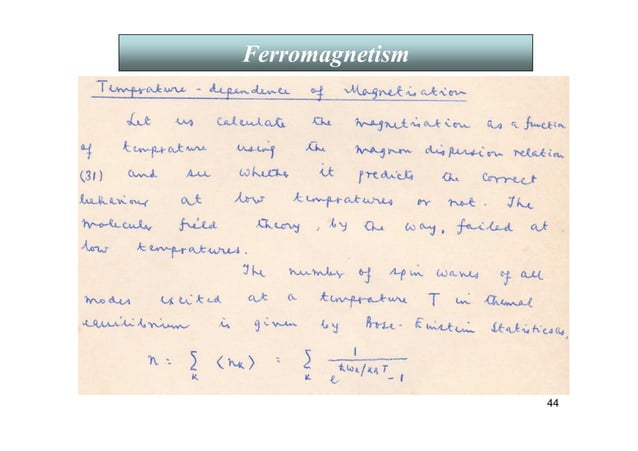 Ferromagnetism
Temprature - dependence of Magnetisation
Let us calculate the magnetisation as a function
of temprature using the magnon dispersion relation
(31) and see whether it predicts the correct
behaviour at low tempratures or not. The
molecular field theory, by the way, failed at
low tempratures.
The number of spin waves of all
modes excited at a temprature T in thermal
equilibrium is given by Bose-Einstein Statistics as,
n = ∑_K ⟨n_K⟩ = ∑_K 1/(e^{ℏω_K/k_BT} - 1)
44